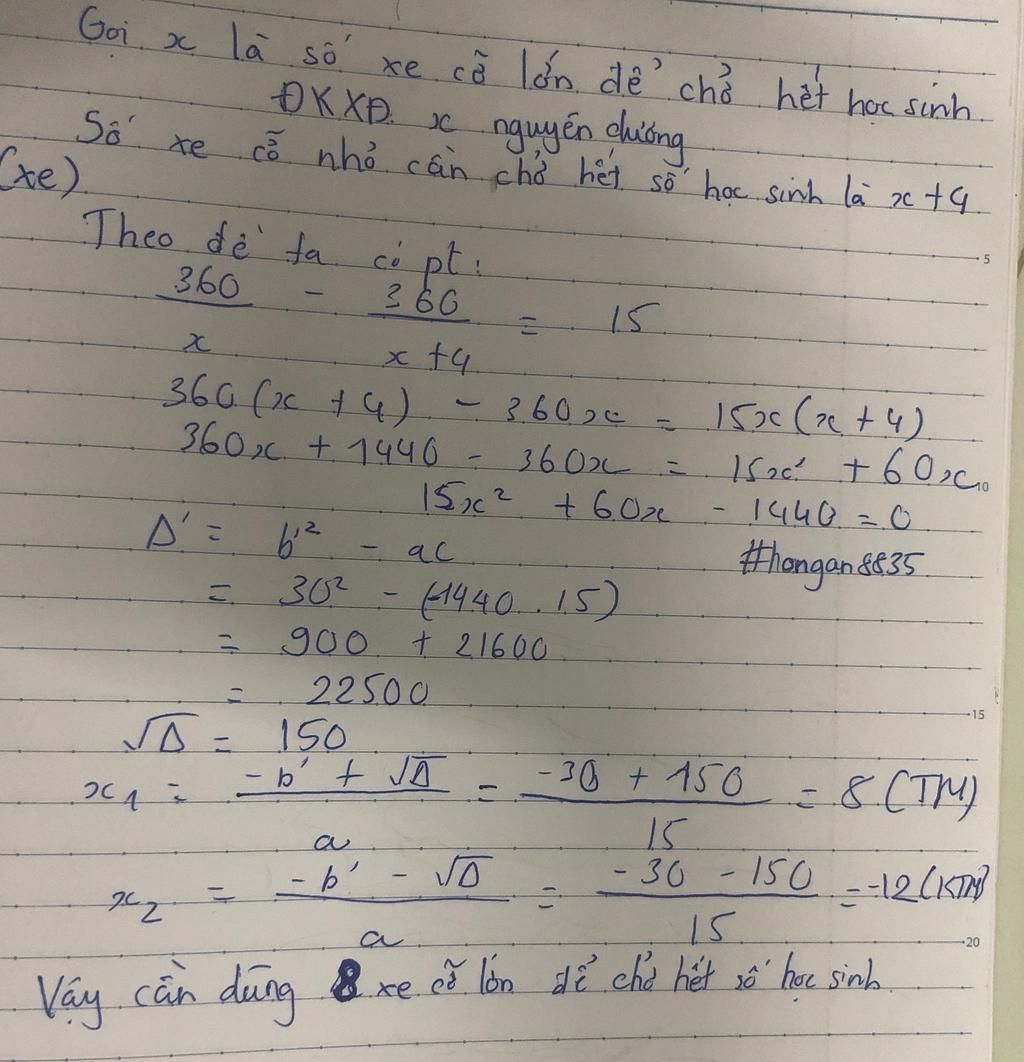 Gọi x là số xe cỡ lớn để chở hết học sinh
ĐKXĐ. x nguyên dương
Số xe cỡ nhỏ cần chở hết số học sinh là x + 4
(xe)
Theo đề ta có pt:
360/x - 360/(x + 4) = 15
360(x + 4) - 360x = 15x(x + 4)
360x + 1440 - 360x = 15x² + 60x
15x² + 60x - 1440 = 0
Δ' = b'² - ac
#hongan8835
= 30² - (-1440.15)
= 900 + 21600
= 22500
√Δ = 150
x₁ = (-b' + √Δ)/a = (-30 + 150)/15 = 8 (TM)
x₂ = (-b' - √Δ)/a = (-30 - 150)/15 = -12 (KTM)
Vậy cần dùng 8 xe cỡ lớn để chở hết số học sinh.
5
10
15
20